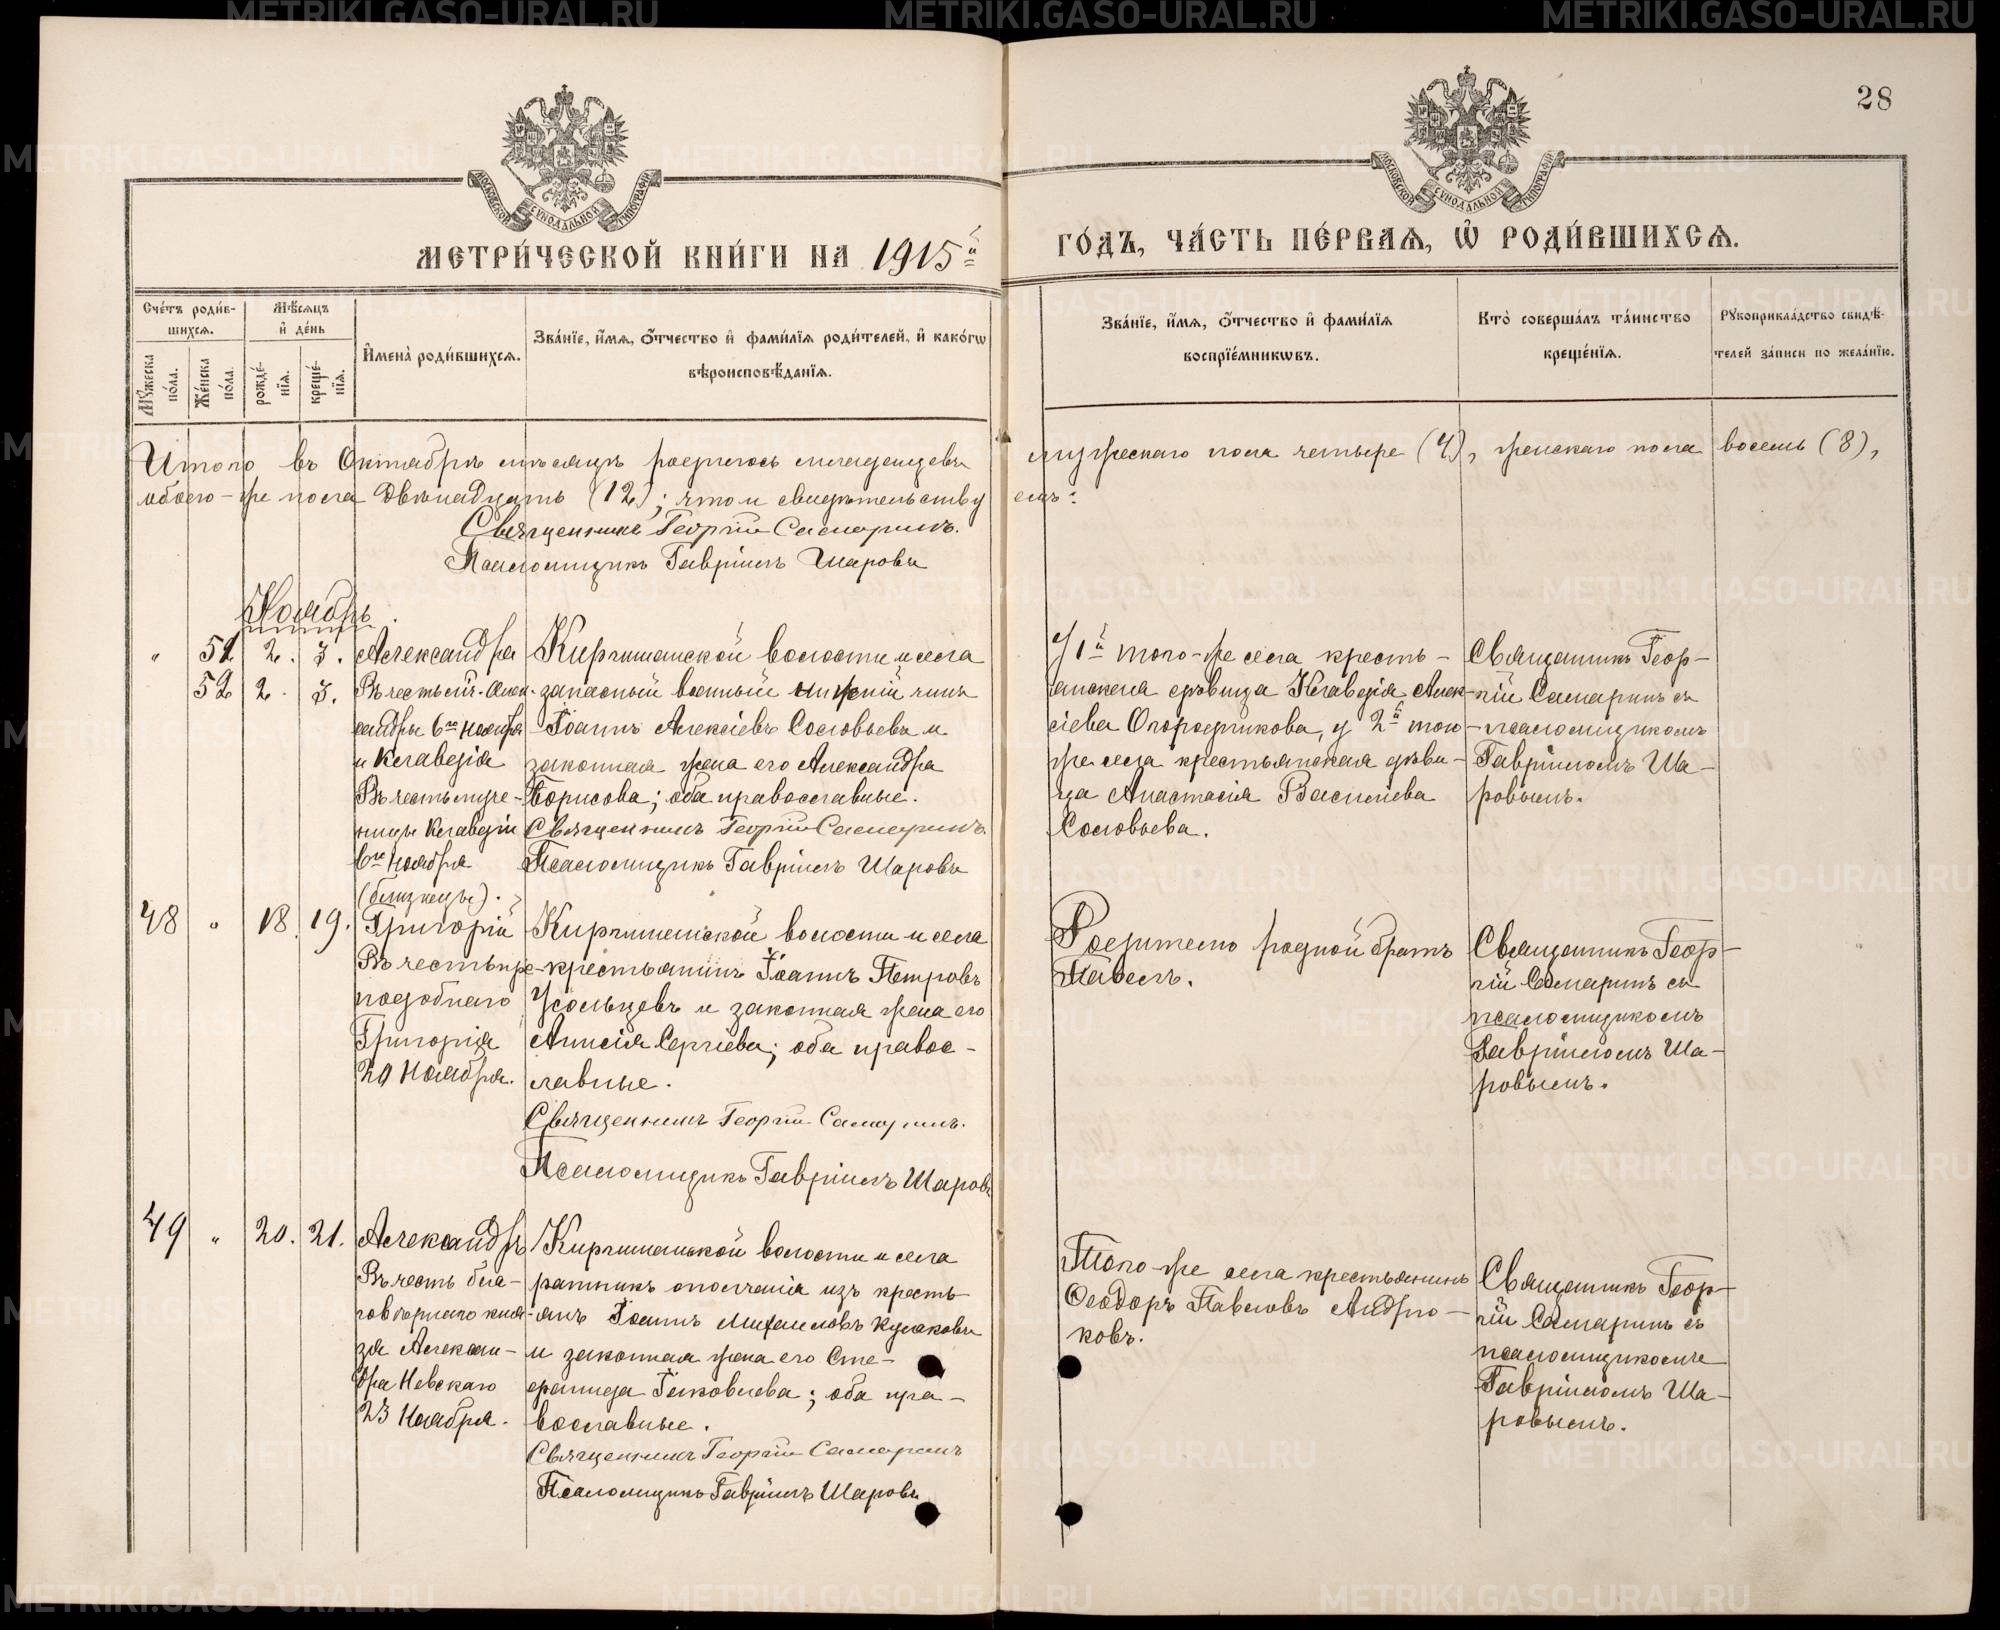 28
МОСКОВСКОЙ СѴНОДАЛЬНОЙ ТИПОГРАФІИ
МОСКОВСКОЙ СѴНОДАЛЬНОЙ ТИПОГРАФІИ
МЕТРИ́ЧЕСКОЙ КНИ́ГИ НА 1915й
ГО́ДЪ, ЧА́СТЬ ПЕ́РВАЯ, Ѡ҆ РОДИ́ВШИХСЯ.
Сче́тъ роди́в-
шихся.
Му́жеска по́ла.
Же́нска по́ла.
Мѣ́сяцъ и҆ де́нь
рожде́-
нїя.
креще́-
нїя.
И҆мена̀ роди́вшихся.
Зва́нїе, и҆́мя, ѻ҆́тчество и҆ фами́лїя роди́телей, и҆ како́гѡ
вѣроисповѣ́данїя.
Зва́нїе, и҆́мя, ѻ҆́тчество и҆ фами́лїя
воспрїе́мникѡвъ.
Кто̀ соверша́лъ та́инство
креще́нїя.
Рꙋкоприкла́дство свидѣ́-
телей за́писи по жела́нїю.
Итого въ Октябрѣ мѣсяцѣ родилось младенцевъ мужескаго пола четыре (4), женскаго пола восемь (8),
обоего-же пола двѣнадцать (12); что и свидѣтельствуемъ:
Священникъ Георгій Самаринъ.
Псаломщикъ Гавріилъ Шаровъ
Ноябрь.
" 51 2. 3. Александра
52 2. 3. Въ честь мч. Алек-
сандры 6го Ноября
и Клавдія
Въ честь муче-
ницы Клавдіи
6го Ноября
(близнецы).
Киргишанской волости и села
запасный военный нижній чинъ
Іоаннъ Алексіевъ Соловьевъ и
законная жена его Александра
Борисова; оба православные.
Священникъ Георгій Самаринъ.
Псаломщикъ Гавріилъ Шаровъ
У 1й того-же села кресть-
янская дѣвица Клавдія Алек-
сіева Огородникова, у 2й того
же села крестьянская дѣви-
ца Анастасія Васильева
Соловьева.
Священникъ Геор-
гій Самаринъ съ
псаломщикомъ
Гавріиломъ Ша-
ровымъ.
48 " 18. 19. Григорій
Въ честь пре-
подобнаго
Григорія
20 Ноября.
Киргишанской волости и села
крестьянинъ Іоаннъ Петровъ
Усольцевъ и законная жена его
Анисія Сергіева; оба правос-
лавные.
Священникъ Георгій Самаринъ.
Псаломщикъ Гавріилъ Шаровъ
Родителю родной братъ
Павелъ.
Священникъ Геор-
гій Самаринъ съ
псаломщикомъ
Гавріиломъ Ша-
ровымъ.
49 " 20. 21. Александръ
Въ честь бла-
говѣрнаго кня-
зя Алексан-
дра Невскаго
23 Ноября.
Киргишанской волости и села
ратникъ ополченія изъ кресть-
янъ Іоаннъ Михаиловъ Кулаковъ
и законная жена его Сте-
фанида Іаковлева; оба пра-
вославные.
Священникъ Георгій Самаринъ
Псаломщикъ Гавріилъ Шаровъ
Того-же села крестьянинъ
Ѳеодоръ Павловъ Андрю-
ковъ.
Священникъ Геор-
гій Самаринъ съ
псаломщикомъ
Гавріиломъ Ша-
ровымъ.
METRIKI.GASO-URAL.RU